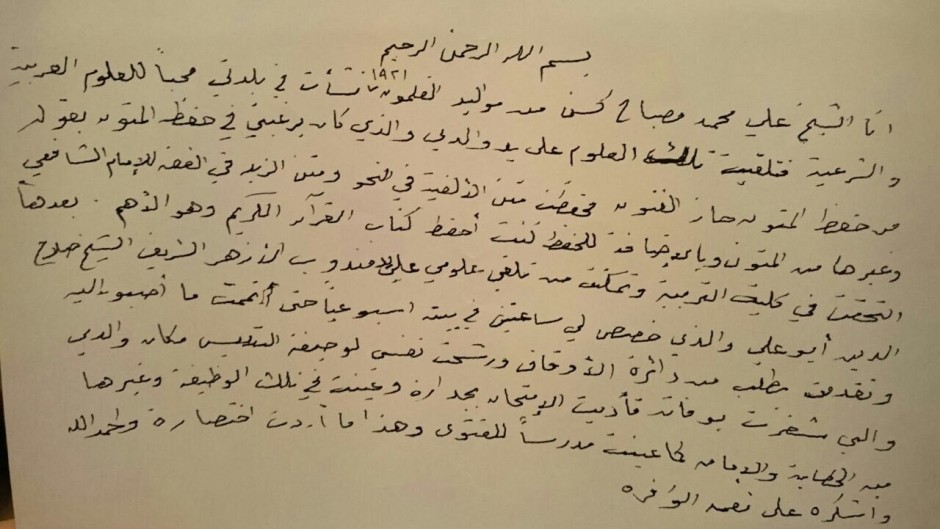 بسم الله الرحمن الرحيم
انا الشيخ علي محمد مصباح حسن من مواليد القلمون ١٩٢١ نشأت في بلدتي محباً للعلوم العربية
والشرعية فتلقيت تلك العلوم على يد والدي والذي كان يرغبني في حفظ المتون بقوله
من حفظ المتون حاز الفنون فحفظت متن الألفية في النحو ومتن الزبد في الفقه للإمام الشافعي
وغيرها من المتون وبالإضافة للحفظ كنت أحفظ كتاب القرآن الكريم وهو الأهم . بعدها
التحقت في كلية التربية وتمكنت من تلقي علومي على يد مندوب الأزهر الشريف الشيخ صلاح
الدين أبو علي والذي خصص لي ساعتين في بيته اسبوعياً حتى أتممت ما أصبو إليه
وتقدمت بطلب من دائرة الأوقاف ورشحت نفسي لوظيفة التدريس مكان والدي
والتي شغرت بوفاته فأديت الإمتحان بجدارة وعينت في تلك الوظيفة وغيرها
من الخطابة والإمامه كما عينت مدرساً للفتوى وهذا ما أردت اختصاره والحمدلله
وأشكره على نعمه الوافره